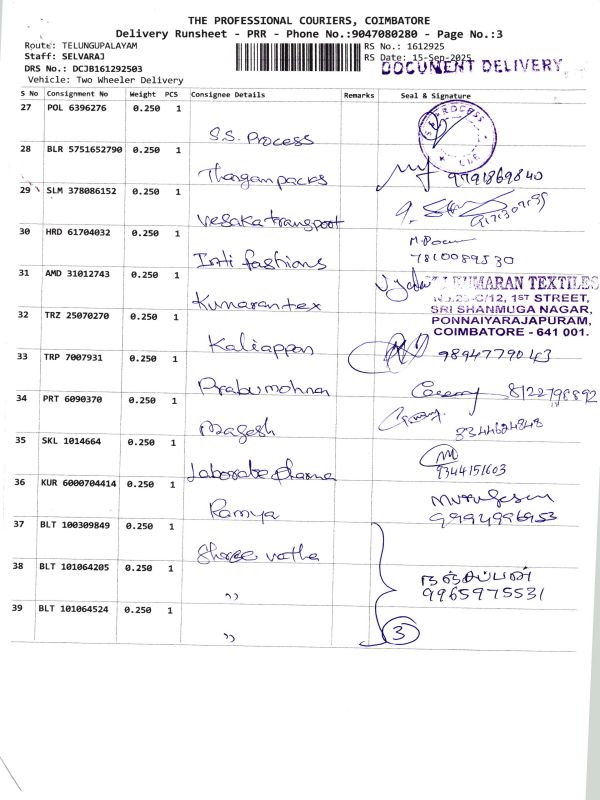 THE PROFESSIONAL COURIERS, COIMBATORE
Delivery Runsheet - PRR - Phone No.:9047080280 - Page No.:3
Route: TELUNGUPALAYAM RS No.: 1612925
Staff: SELVARAJ RS Date: 15-Sep-2025
DOCUMENT DELIVERY
DRS No.: DCJB161292503
Vehicle: Two Wheeler Delivery
S No Consignment No Weight PCS Consignee Details Remarks Seal & Signature
27 POL 6396276 0.250 1
S.S. Process
S.S. PROCESS
CBE
28 BLR 5751652790 0.250 1
Thangampacks 9791869840
29 SLM 378086152 0.250 1
Vesaka transpoot
30 HRD 61704032 0.250 1
Inti fashions 7810089530
31 AMD 31012743 0.250 1
Kumarantex
KUMARAN TEXTILES
No.25-C/12, 1ST STREET,
SRI SHANMUGA NAGAR,
PONNAIYARAJAPURAM,
COIMBATORE - 641 001.
32 TRZ 25070270 0.250 1
Kaliappan 9894779043
33 TRP 7007931 0.250 1
Prabumohnan 8122798892
34 PRT 6090370 0.250 1
Magesh 8344624848
35 SKL 1014664 0.250 1
Laborate pharma 9344151603
36 KUR 6000704414 0.250 1
Ramya Murugesan
9994996953
37 BLT 100309849 0.250 1
Shree vatha
38 BLT 101064205 0.250 1
" நஞ்சப்பன்
9965975531
39 BLT 101064524 0.250 1
" 3